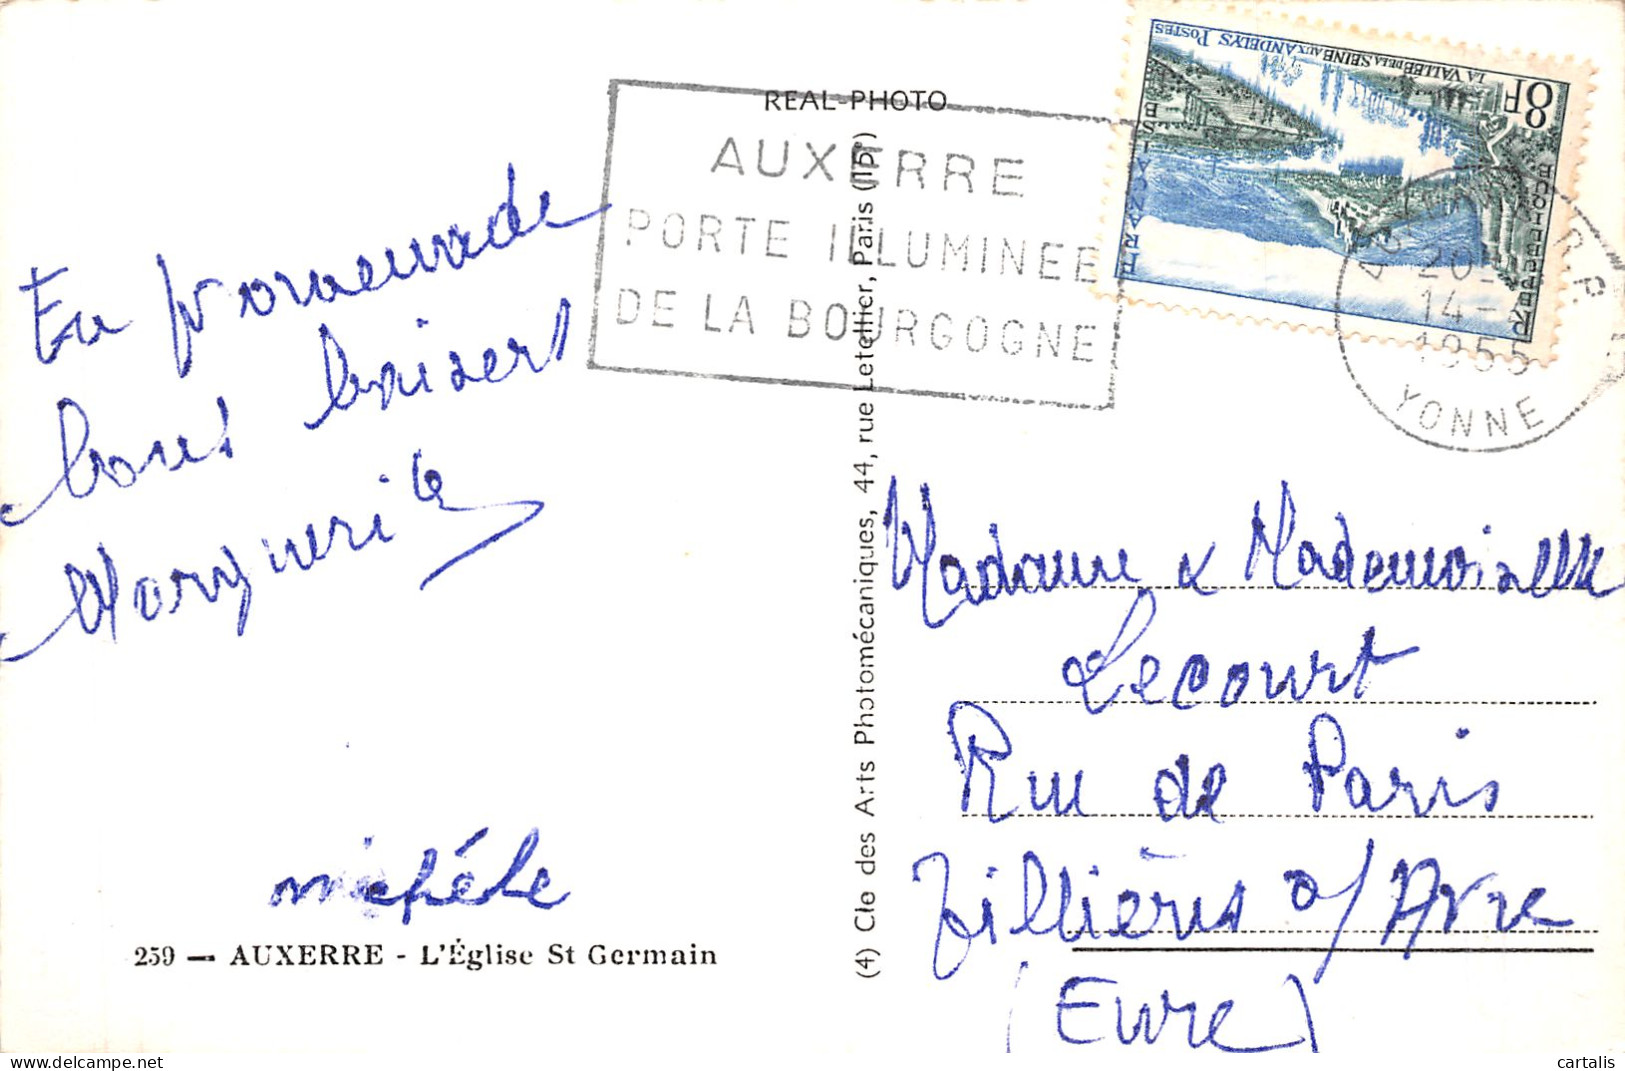 REAL-PHOTO
AUXERRE
PORTE ILLUMINEE
DE LA BOURGOGNE
8F
LA VALLÉE DE LA SEINE AUX ANDELYS POSTES
RÉPUBLIQUE FRANÇAISE
AUXERRE R.P.
20
14 -
1955
YONNE
En promenade
bons baisers
Marguerite
michéle
259 — AUXERRE - L'Église St Germain
(4) Cie des Arts Photomécaniques, 44, rue Letellier, Paris (15e)
Madame & Mademoiselle
Lecourt
Rue de Paris
Tillières s/ Avre
(Eure)
cartalis